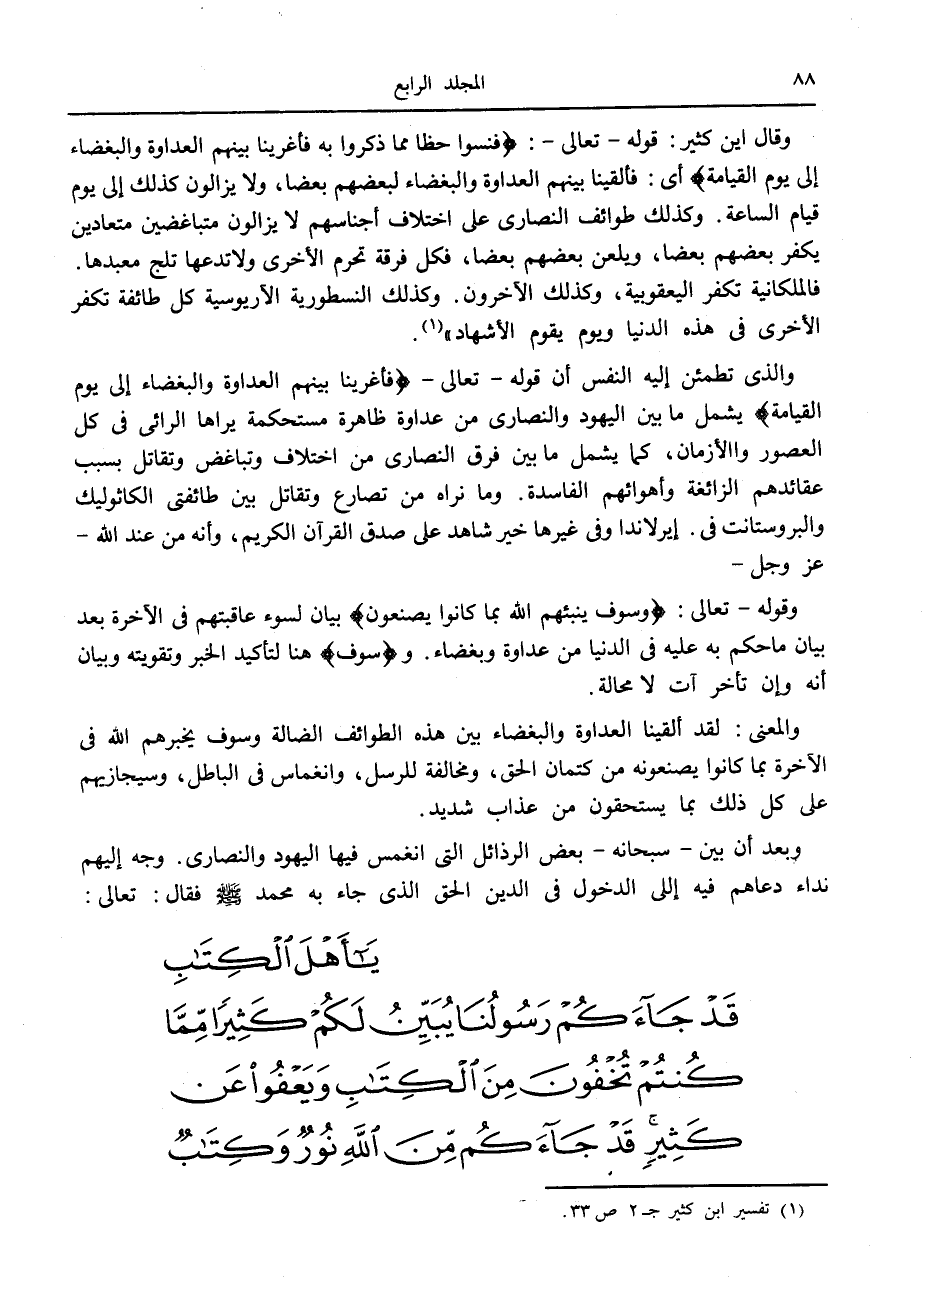 ٨٨
المجلد الرابع
وقال ابن كثير : قوله - تعالى - : ﴿فنسوا حظا مما ذكروا به فأغرينا بينهم العداوة والبغضاء
إلى يوم القيامة﴾ أى : فألقينا بينهم العداوة والبغضاء لبعضهم بعضا، ولا يزالون كذلك إلى يوم
قيام الساعة. وكذلك طوائف النصارى على اختلاف أجناسهم لا يزالون متباغضين متعادين
يكفر بعضهم بعضا، ويلعن بعضهم بعضا، فكل فرقة تحرم الأخرى ولاتدعها تلج معبدها.
فالملكانية تكفر اليعقوبية، وكذلك الآخرون. وكذلك النسطورية الآريوسية كل طائفة تكفر
الأخرى فى هذه الدنيا ويوم يقوم الأشهاد»(١).
والذى تطمئن إليه النفس أن قوله - تعالى - ﴿فأغرينا بينهم العداوة والبغضاء إلى يوم
القيامة﴾ يشمل ما بين اليهود والنصارى من عداوة ظاهرة مستحكمة يراها الرائى فى كل
العصور واالأزمان، كما يشمل ما بين فرق النصارى من اختلاف وتباغض وتقاتل بسبب
عقائدهم الزائغة وأهوائهم الفاسدة. وما نراه من تصارع وتقاتل بين طائفتى الكاثوليك
والبروستانت فى. إيرلاندا وفى غيرها خير شاهد على صدق القرآن الكريم، وأنه من عند الله -
عز وجل -
وقوله - تعالى : ﴿وسوف ينبئهم الله بما كانوا يصنعون﴾ بيان لسوء عاقبتهم فى الآخرة بعد
بيان ماحكم به عليه فى الدنيا من عداوة وبغضاء. و﴿سوف﴾ هنا لتأكيد الخبر وتقويته وبيان
أنه وإن تأخر آت لا محالة.
والمعنى : لقد ألقينا العداوة والبغضاء بين هذه الطوائف الضالة وسوف يخبرهم الله فى
الآخرة بما كانوا يصنعونه من كتمان الحق، ومخالفة للرسل، وانغماس فى الباطل، وسيجازيهم
على كل ذلك بما يستحقون من عذاب شديد.
وبعد أن بين - سبحانه - بعض الرذائل التى انغمس فيها اليهود والنصارى. وجه إليهم
نداء دعاهم فيه إللى الدخول فى الدين الحق الذى جاء به محمد ﷺ فقال : تعالى :
يَـٰٓأَهْلَ ٱلْكِتَـٰبِ
قَدْ جَآءَكُمْ رَسُولُنَا يُبَيِّنُ لَكُمْ كَثِيرًا مِّمَّا
كُنتُمْ تُخْفُونَ مِنَ ٱلْكِتَـٰبِ وَيَعْفُوا۟ عَن
كَثِيرٍ ۚ قَدْ جَآءَكُم مِّنَ ٱللَّهِ نُورٌ وَكِتَـٰبٌ
(١) تفسير ابن كثير جـ ٢ ص ٣٣.